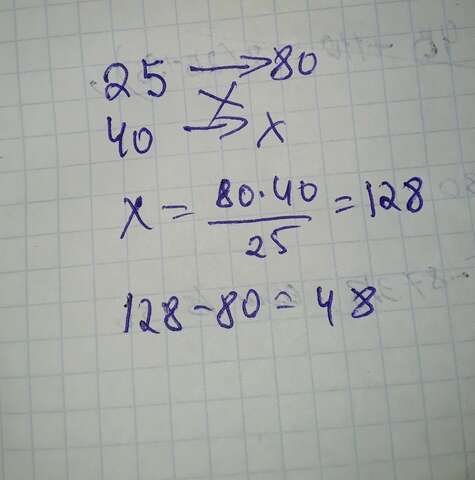 25 → 80
40 → x
x = 80·40/25 = 128
128-80=48